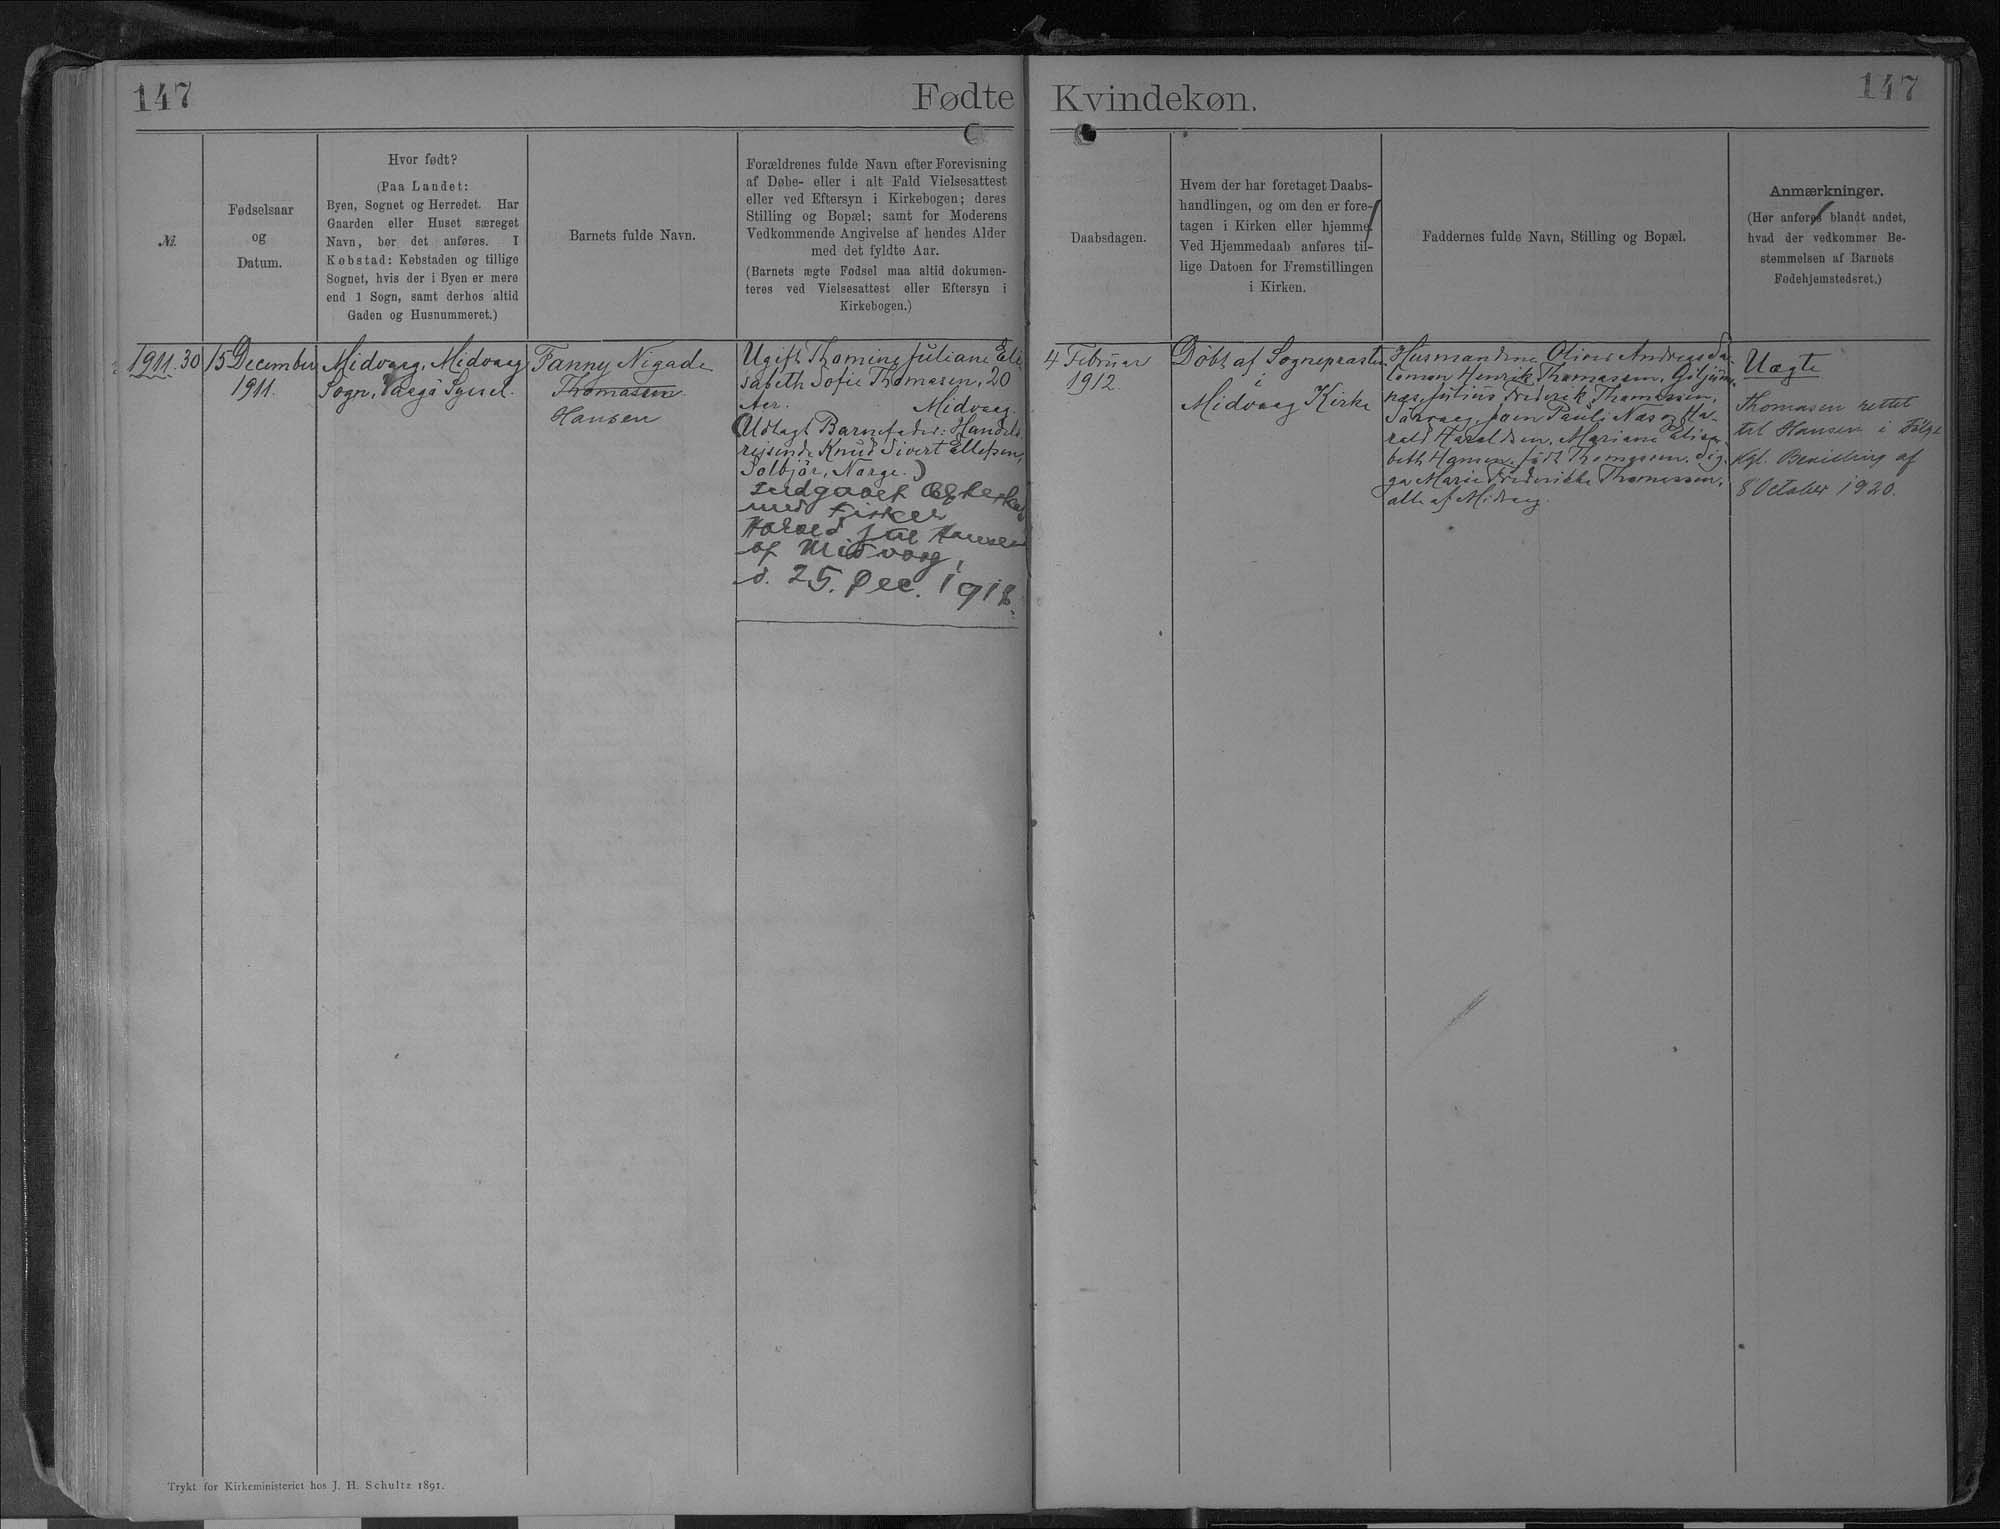 147
Fødte
Kvindekøn.
147
№.
Fødselsaar
og
Datum.
Hvor født?
(Paa Landet:
Byen, Sognet og Herredet. Har
Gaarden eller Huset særeget
Navn, bør det anføres. I
Købstad: Købstaden og tillige
Sognet, hvis der i Byen er mere
end 1 Sogn, samt derhos altid
Gaden og Husnummeret.)
Barnets fulde Navn.
Forældrenes fulde Navn efter Forevisning
af Døbe- eller i alt Fald Vielsesattest
eller ved Eftersyn i Kirkebogen; deres
Stilling og Bopæl; samt for Moderens
Vedkommende Angivelse af hendes Alder
med det fyldte Aar.
(Barnets ægte Fødsel maa altid dokumen-
teres ved Vielsesattest eller Eftersyn i
Kirkebogen.)
Daabsdagen.
Hvem der har foretaget Daabs-
handlingen, og om den er fore-
tagen i Kirken eller hjemme.
Ved Hjemmedaab anføres til-
lige Datoen for Fremstillingen
i Kirken.
Faddernes fulde Navn, Stilling og Bopæl.
Anmærkninger.
(Her anføres blandt andet,
hvad der vedkommer Be-
stemmelsen af Barnets
Fødehjemstedsret.)
1911. 30
15 December
1911.
Midvaag, Midvaag
Sogn, Vaagö Syssel.
Fanny Nigade
Thomasen
Hansen
Ugift Thomine Juliane Eli-
sabeth Sofie Thomasen, 20
Aar. Midvaag.
(Udlagt Barnefader: Handels-
rejsende Knud Sivert Ellefsen,
Solbjör, Norge.)
Indgaaet Ægteskab
med Fisker
Harald Juul Hansen
af Midvaag,
d. 25. Dec. 1918.
4 Februar
1912.
Döbt af Sognepræsten
i
Midvaag Kirke
Husmændene Oliver Andreas Sa-
lomon Henrik Thomassen, Giljum-
næs, Julius Frederik Thomassen,
Sörvaag, Joen Pauli Næs og Ha-
rald Haraldsen, Mariane Elisa-
beth Hansen, födt Thomassen, Sig-
ga Marie Frederikke Thomassen,
alle af Midvaag.
Uægte
Thomasen rettet
til Hansen i Fölge
Kgl. Bevilling af
8 October 1920.
Trykt for Kirkeministeriet hos J. H. Schultz 1891.